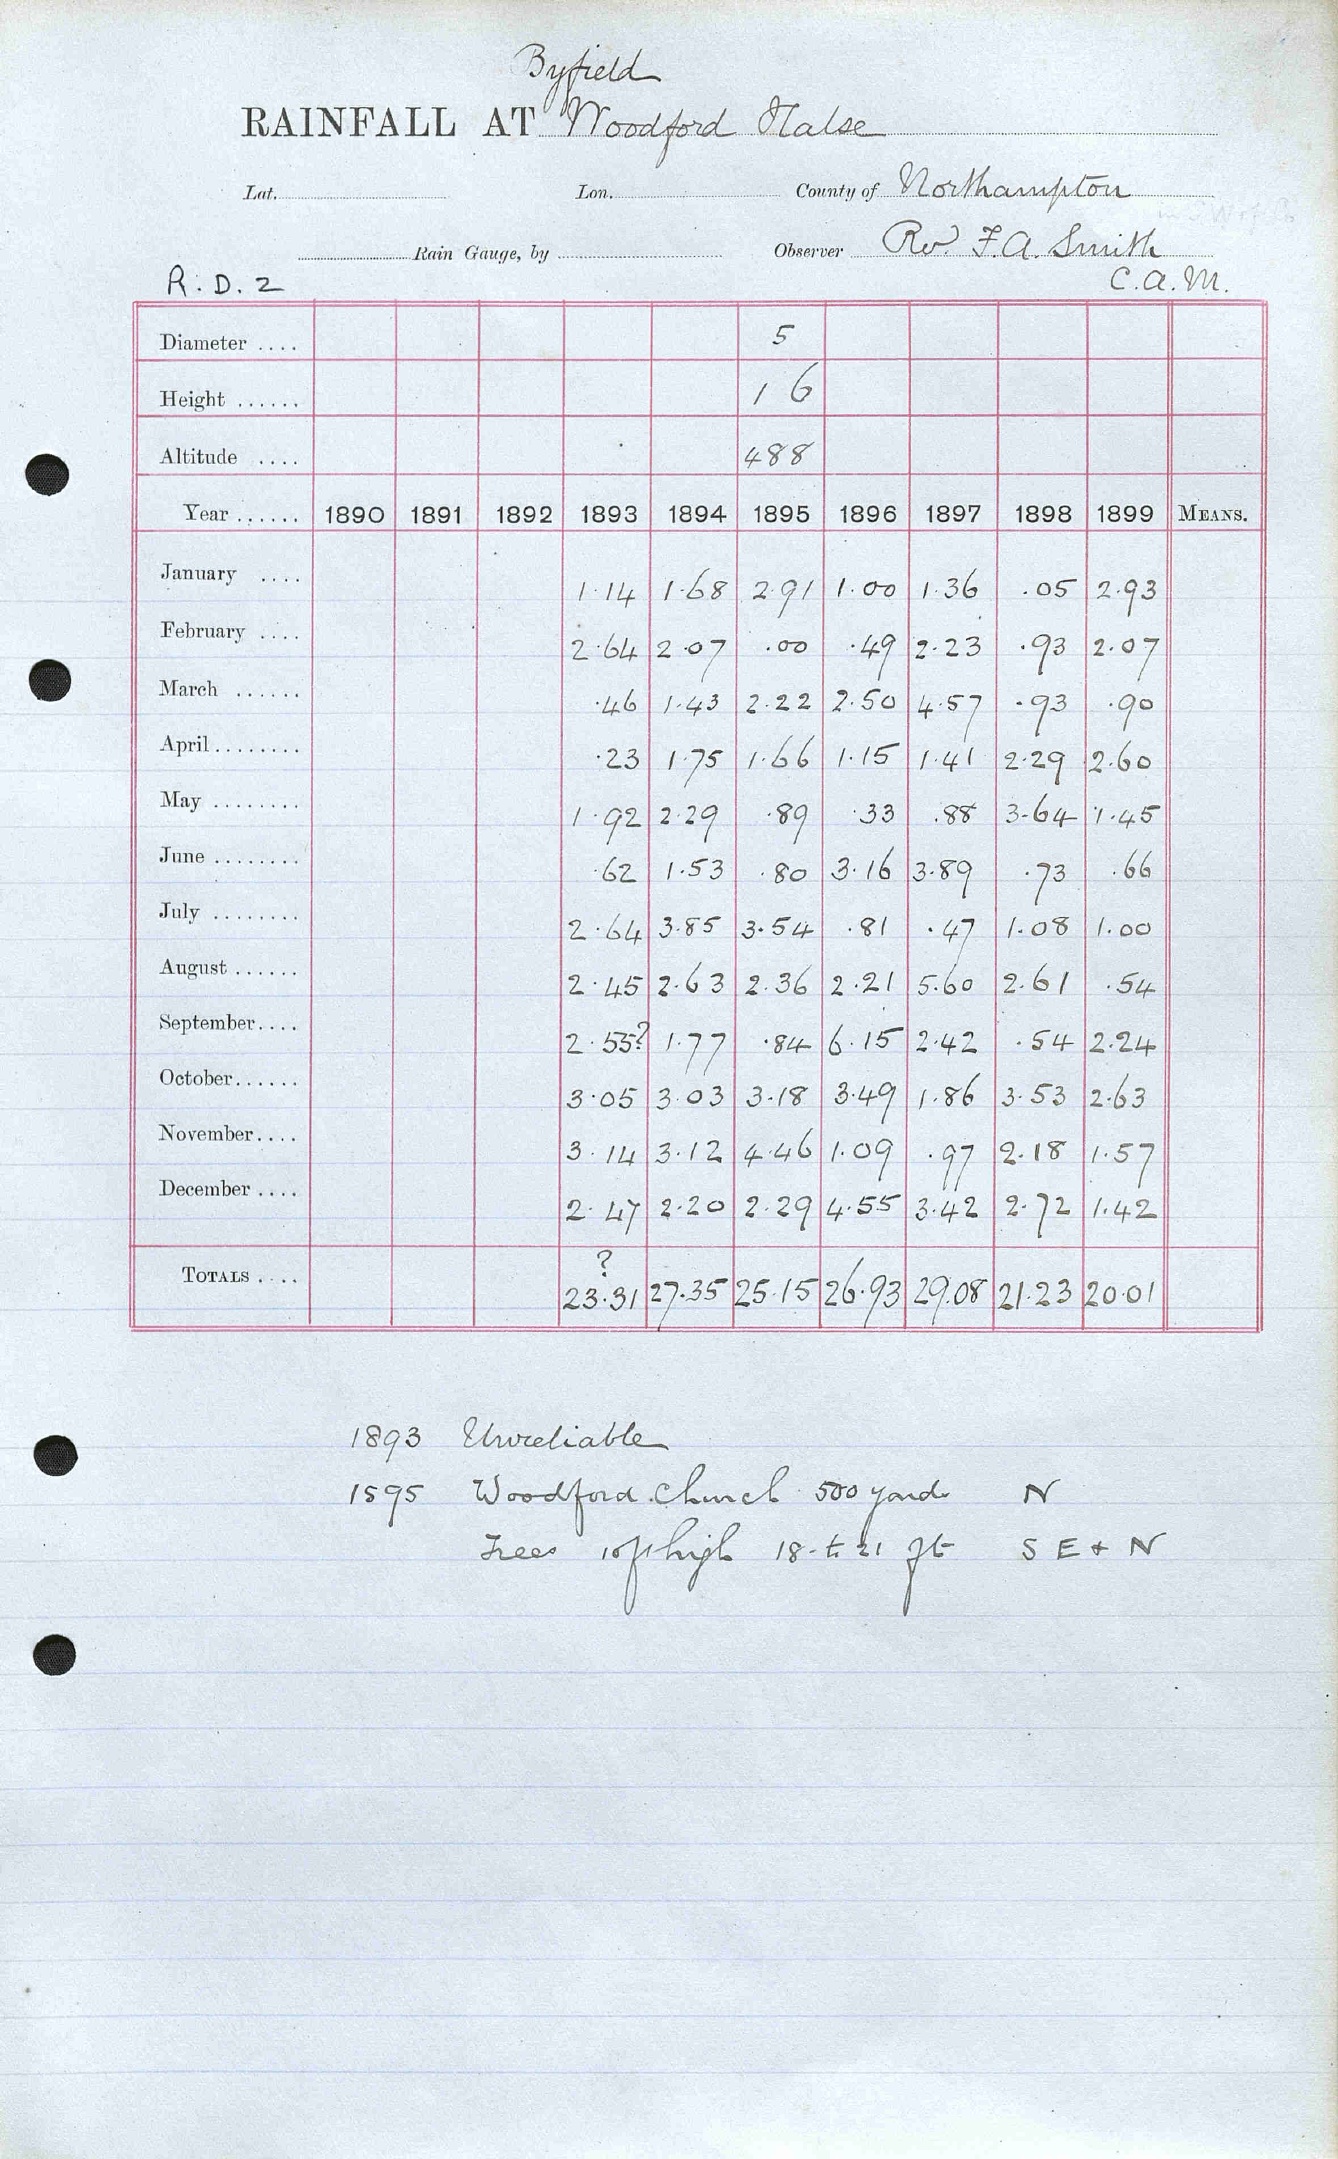 Byfield
RAINFALL AT Woodford Halse
Lat. Lon. County of Northampton
Rain Gauge, by Observer Rev. F. A. Smith
R. D. 2 C. A. M.
Diameter .... 5
Height ...... 1 6
Altitude .... 488
Year ...... 1890 1891 1892 1893 1894 1895 1896 1897 1898 1899 MEANS.
January .... 1.14 1.68 2.91 1.00 1.36 .05 2.93
February .... 2.64 2.07 .00 .49 2.23 .93 2.07
March ...... .46 1.43 2.22 2.50 4.57 .93 .90
April ........ .23 1.75 1.66 1.15 1.41 2.29 2.60
May ........ 1.92 2.29 .89 .33 .88 3.64 1.45
June ........ .62 1.53 .80 3.16 3.89 .73 .66
July ........ 2.64 3.85 3.54 .81 .47 1.08 1.00
August ...... 2.45 2.63 2.36 2.21 5.60 2.61 .54
September.... 2.55? 1.77 .84 6.15 2.42 .54 2.24
October...... 3.05 3.03 3.18 3.49 1.86 3.53 2.63
November.... 3.14 3.12 4.46 1.09 .97 2.18 1.57
December .... 2.47 2.20 2.29 4.55 3.42 2.72 1.42
?
TOTALS .... 23.31 27.35 25.15 26.93 29.08 21.23 20.01
1893 Unreliable
1895 Woodford Church 500 yards N
Trees 10ft high 18 to 21 ft S E & N